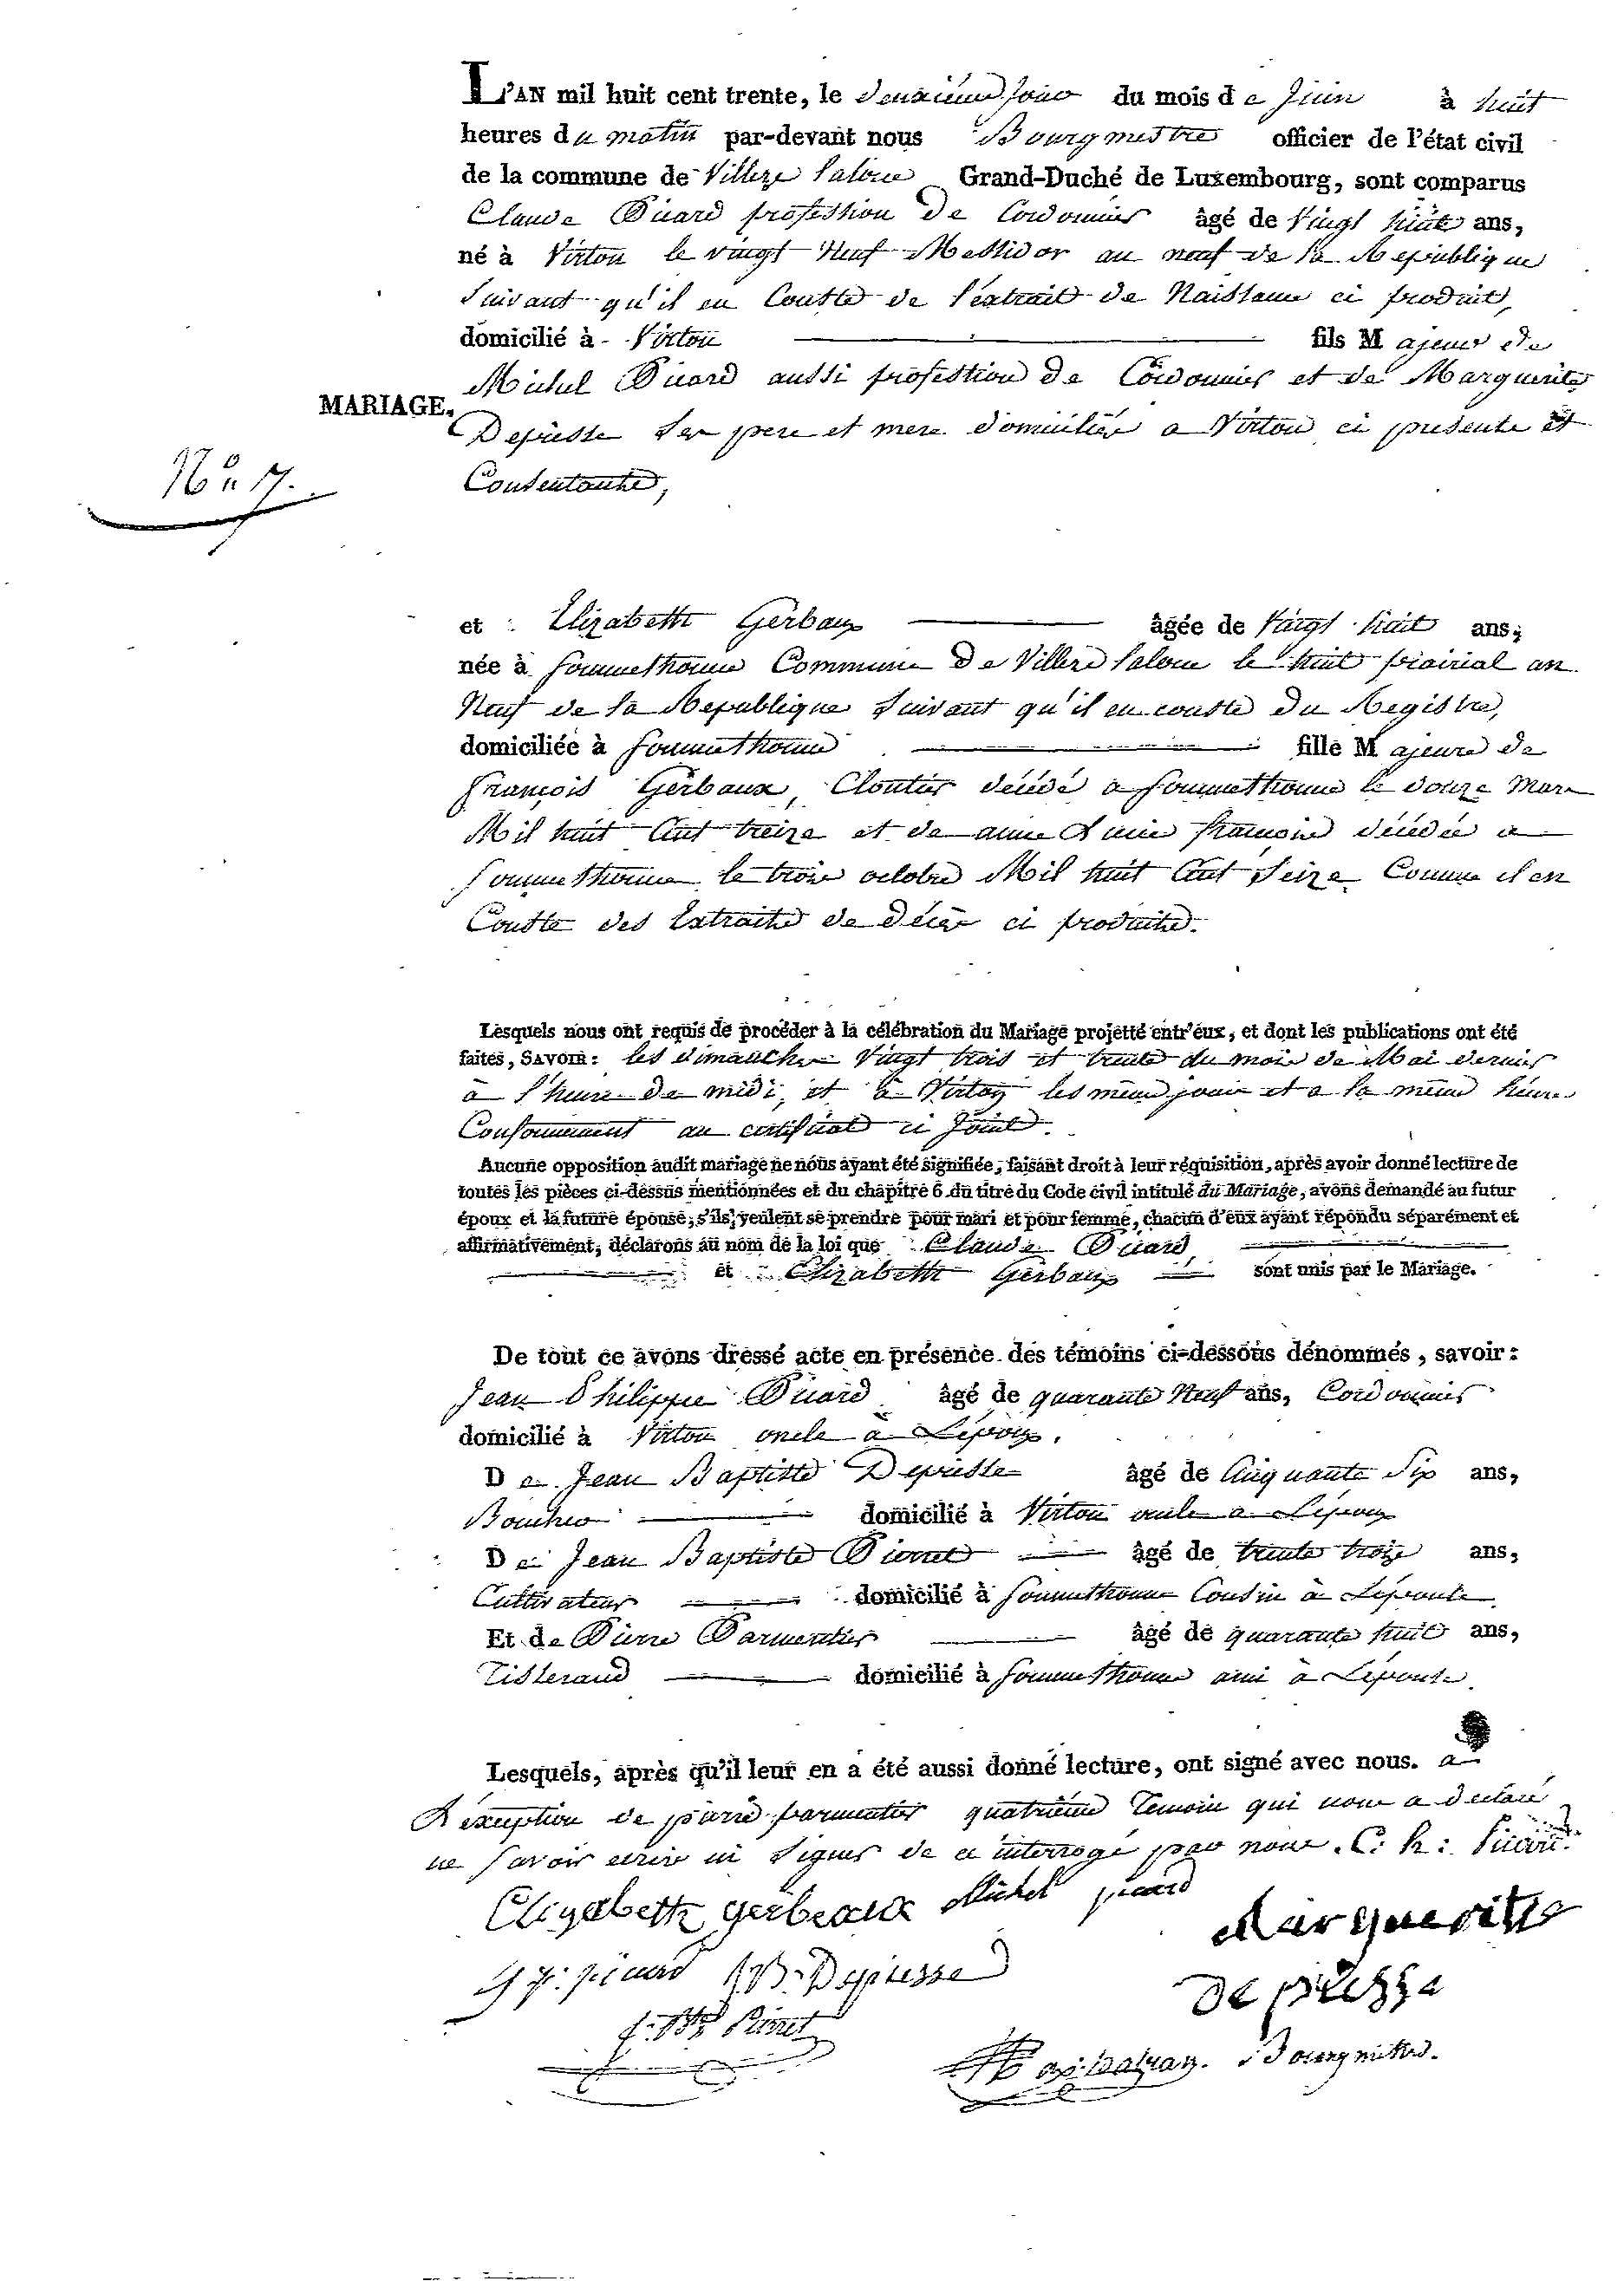 L'AN mil huit cent trente, le deuxieme jour du mois de Juin à huit
heures du matin par-devant nous Bourgmestre officier de l'état civil
de la commune de Villers Laloue Grand-Duché de Luxembourg, sont comparus
Claude Picard profession de Cordonnier âgé de vingt huit ans,
né à Virton le vingt Neuf Messidor an neuf de la Republique
suivant qu'il en Conste de l'extrait de Naissance ci produit,
domicilié à Virton fils Majeur de
Michel Picard aussi profession de Cordonnier et de Marguerite
MARIAGE.
Depiesse ses pere et mere domiciliés a Virton ci presents et
N° 7.
Consentants,
et Elizabeth Gerbaux âgée de Vingt huit ans,
née à Sommethonne Commune de Villers Laloue le huit prairial an
Neuf de la Republique suivant qu'il en conste du Registre,
domiciliée à Sommethonne fille Majeure de
François Gerbaux, Cloutier décédé a Sommethonne le douze Mars
Mil huit Cent treize et de anne François décédée a
Sommethonne le trois octobre Mil huit Cent Seize Comme il en
Conste des Extraits de décès ci produits.
Lesquels nous ont requis de procéder à la célébration du Mariage projetté entr'eux, et dont les publications ont été
faites, SAVOIR: les dimanches Vingt trois et trente du mois de Mai dernier
a l'heure de midi, et à Virton les même jours et a la même heure
Conformement au certificat ci Joint.
Aucune opposition audit mariage ne nous ayant été signifiée, faisant droit à leur réquisition, après avoir donné lecture de
toutes les pièces ci-dessus mentionnées et du chapitre 6 du titre du Code civil intitulé du Mariage, avons demandé au futur
époux et la future épouse, s'ils veulent se prendre pour mari et pour femme, chacun d'eux ayant répondu séparément et
affirmativement, déclarons au nom de la loi que Claude Picard
et Elizabeth Gerbaux sont unis par le Mariage.
De tout ce avons dressé acte en présence des témoins ci-dessous dénommés, savoir:
Jean Philippe Picard âgé de quarante Neuf ans, Cordonnier
domicilié à Virton oncle a L'époux.
De Jean Baptiste Depiesse âgé de Cinquante Six ans,
Boucher domicilié à Virton oncle a L'époux
De Jean Baptiste Pierret âgé de trente trois ans,
Cultivateur domicilié à Sommethonne Cousin à L'épouse
Et de Pierre Parmentier âgé de quarante huit ans,
Tisserand domicilié à Sommethonne ami a L'épouse.
Lesquels, après qu'il leur en a été aussi donné lecture, ont signé avec nous. a
L'exception de pierre parmentier quatrième Temoin qui nous a declaré
ne savoir ecrire ni signer de ce interrogé par nous. C: h: Picard.
Elizabeth gerbeaux Michel picard
Margueritte
J p: picard J B: Depiesse
De piesse
J: Bte Pierret
Bourgmestre.